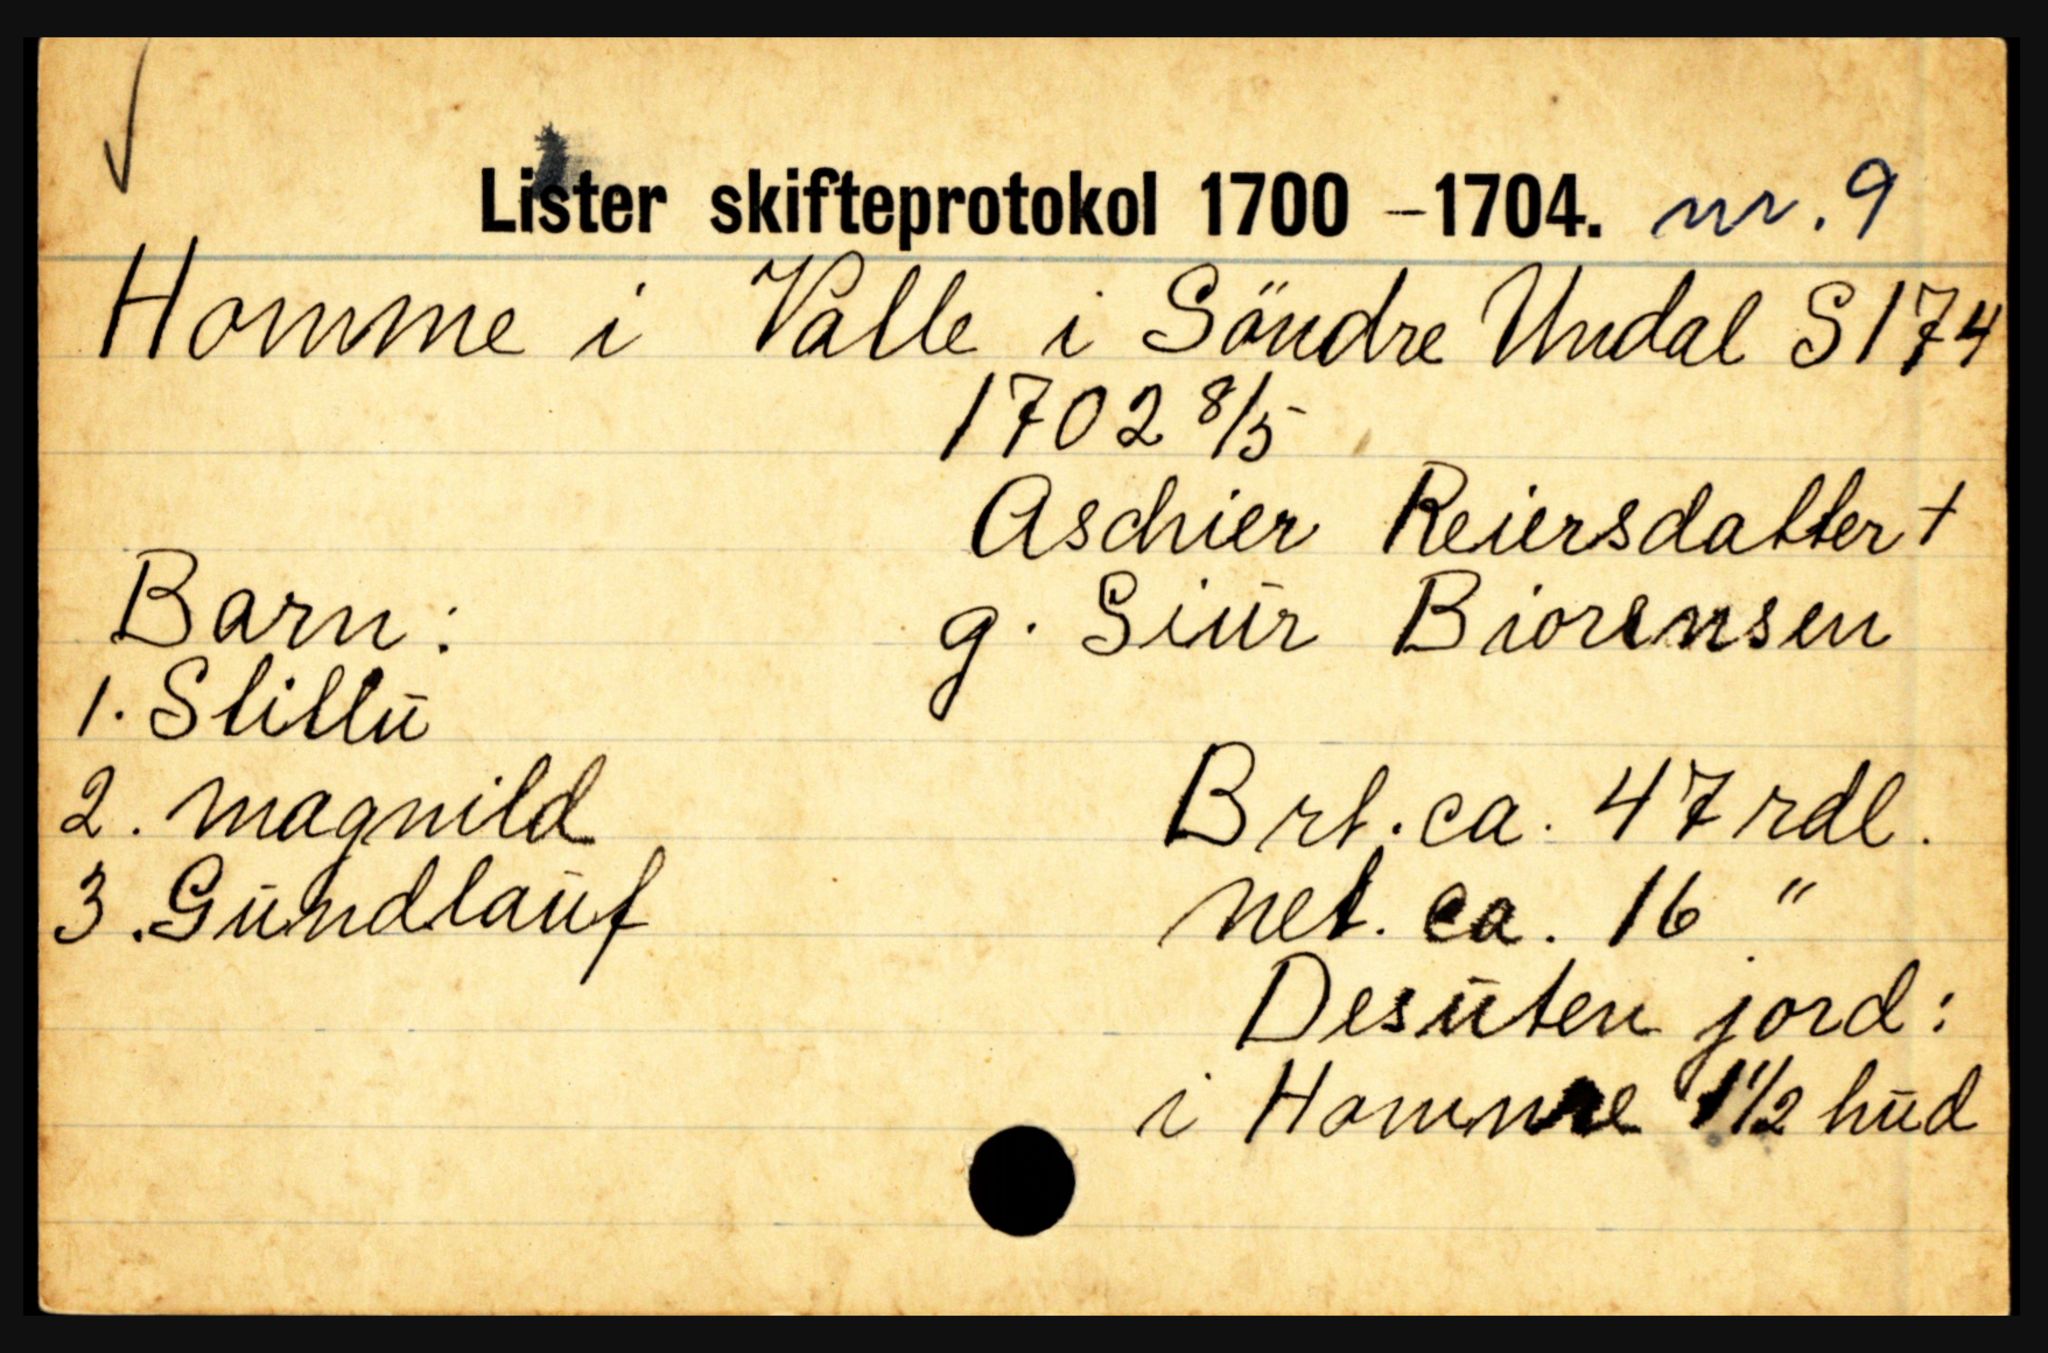 Lister skifteprotokol 1700 –1704. nr. 9
Homme i Valle i Söndre Undal S 174
1702 8/5
Aschier Reiersdatter +
Barn: g. Siur Biorensen
1. Slillu
2. magnild Brt. ca. 47 rdl.
3. Gundlauf net. ca. 16 "
Desuten jord:
i Homme 1 1/2 hud